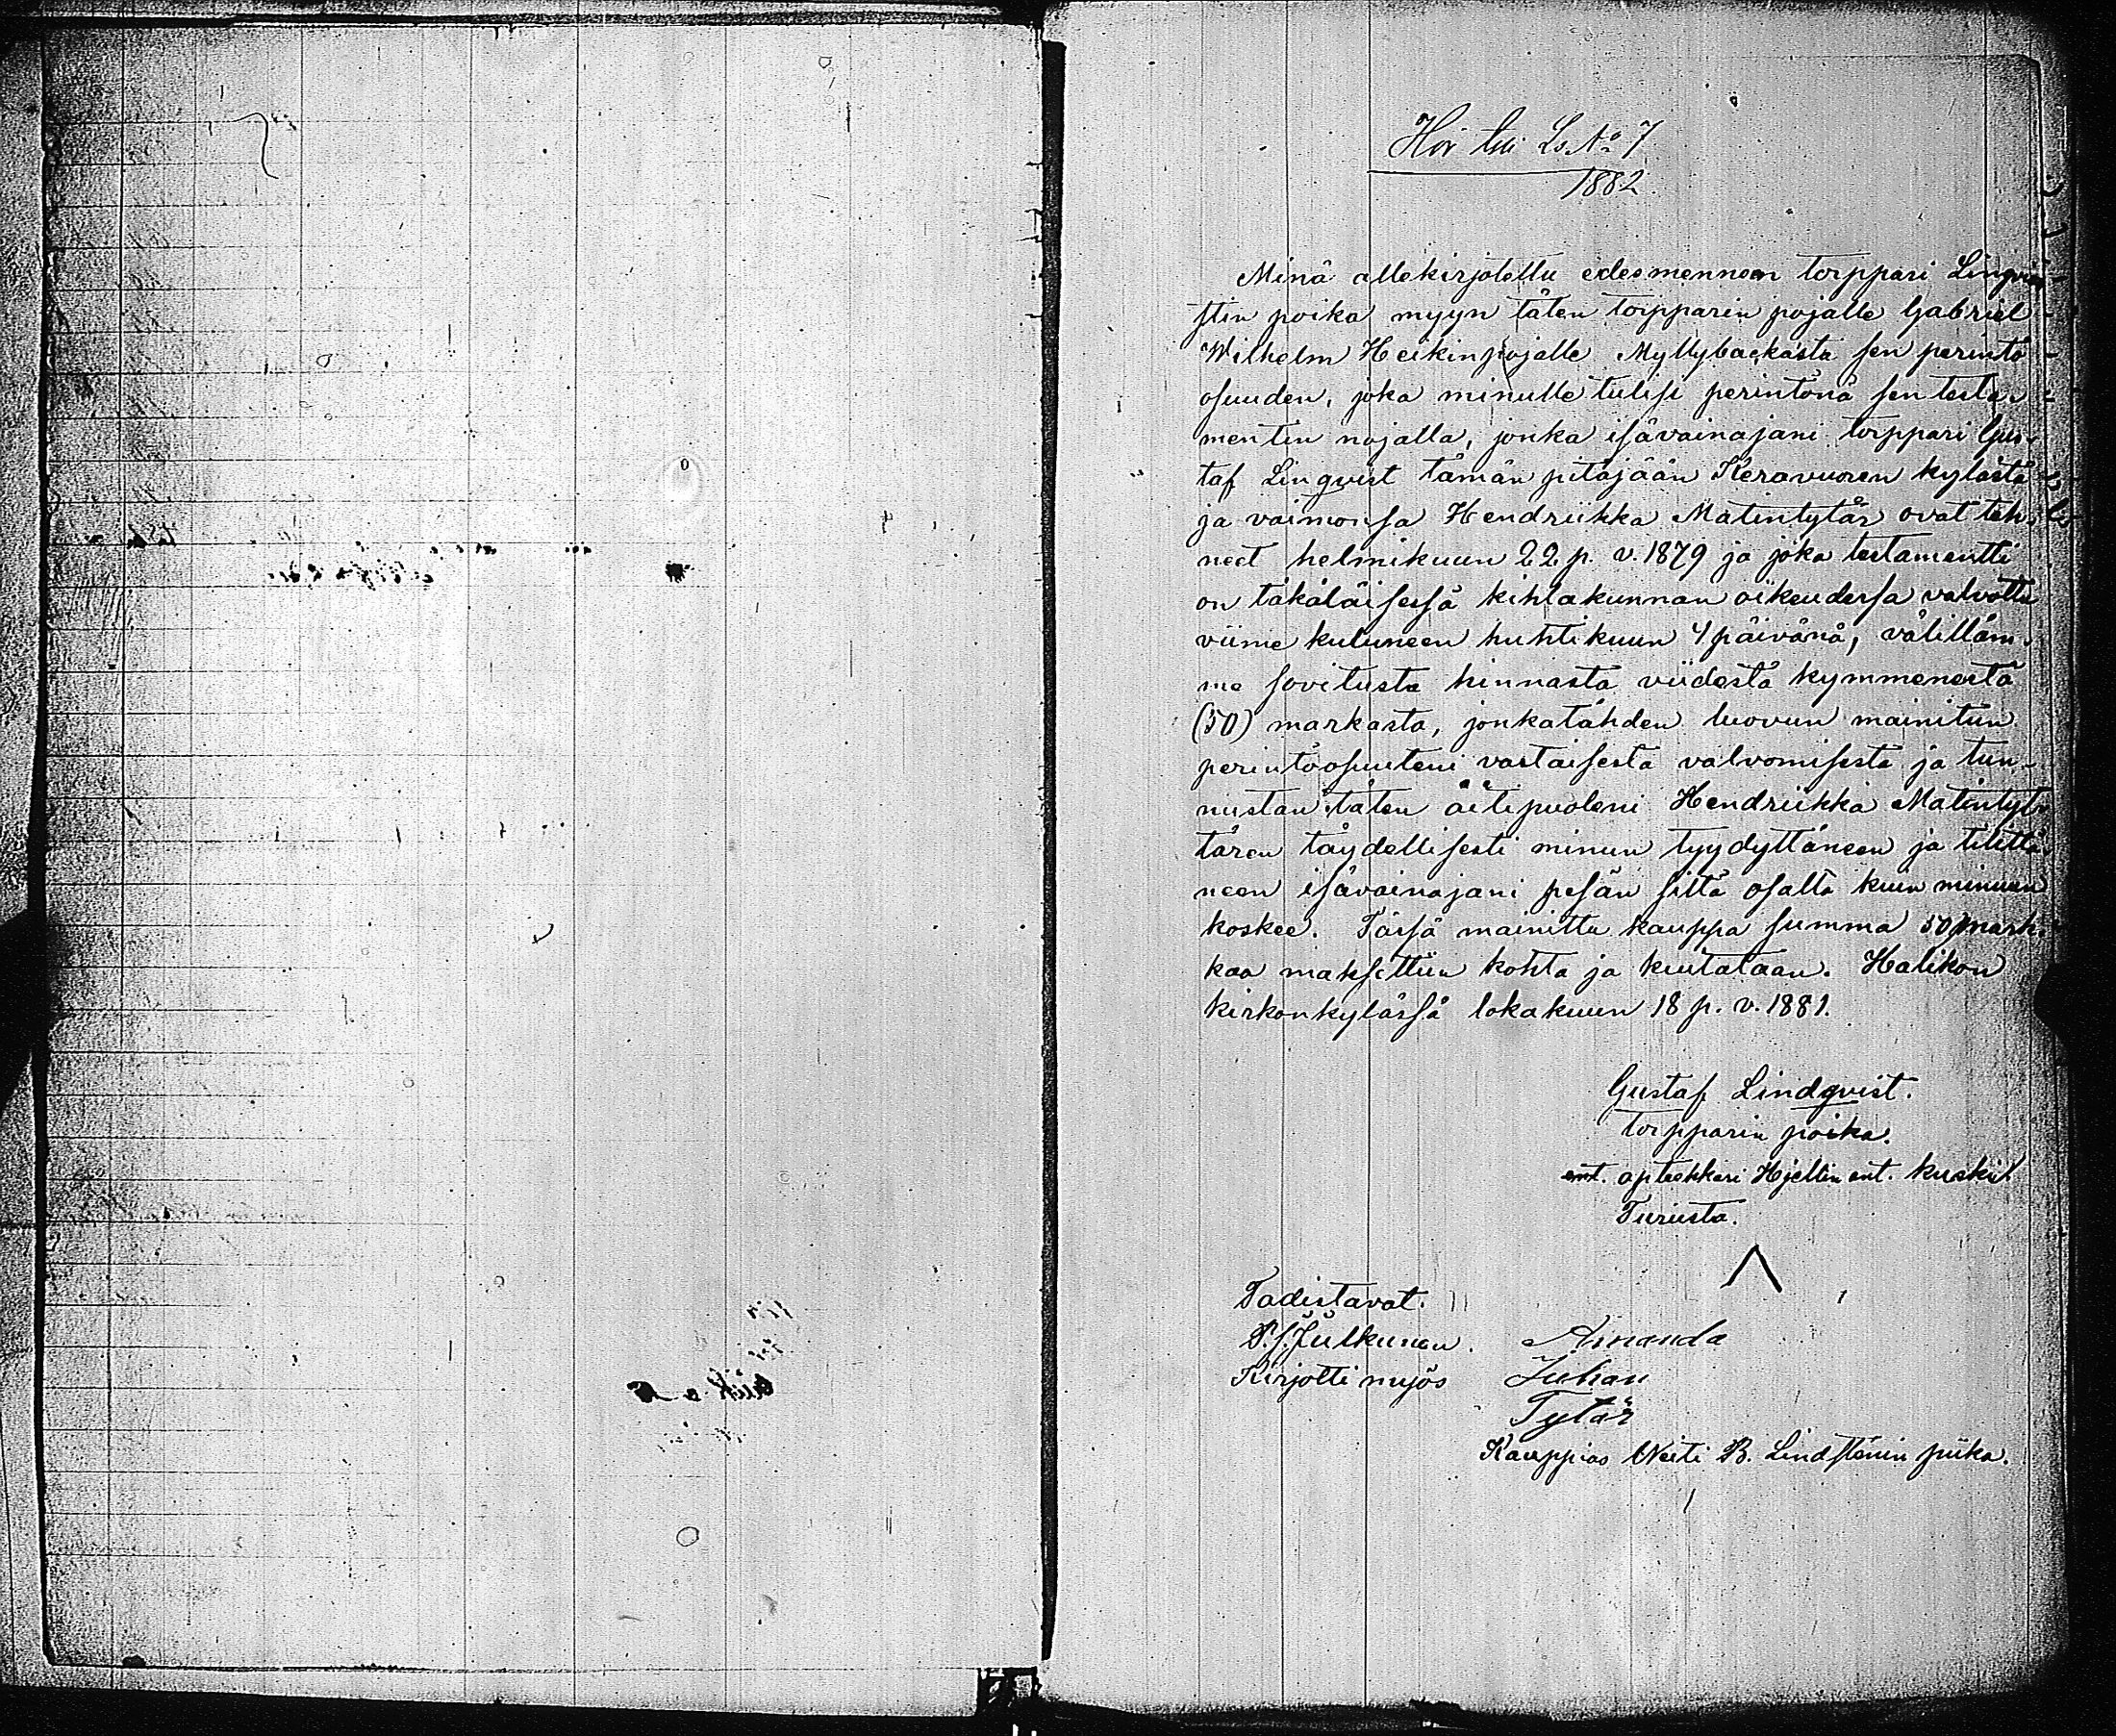 Hör till Ls. No 7
1882
Minä allekirjotettu edesmenneen torppari Lingvi
stin poika myyn täten torpparin pojalle Gabriel
Wilhelm Heikinpojalle Myllybackasta sen perintö
osuuden, joka minulle tulisi perintönä sen testa-
mentin nojalla, jonka isävainajani torppari Gus-
taf Lingvist tämän pitäjään Keravuoren kylästä
ja vaimonsa Hendriikka Matintytär ovat teh-
neet helmikuun 22 p. v. 1879 ja joka testamentti
on täkäläisessä kihlakunnan oikeudessa valvottu
viime kuluneen huhtikuun 4 päivänä, välilläm-
me sovitusta hinnasta viidestä kymmenestä
(50) markasta, jonkatähden luovun mainitun
perintöosuuteni vastaisesta valvomisesta ja tun-
nustan täten äitipuoleni Hendriikka Matintyt-
tären täydellisesti minun tyydyttäneen ja tilittä-
neen isävainajani pesän siltä osalta kuin minuun
koskee. Tässä mainittu kauppa summa 50 mark-
kaa maksettiin kohta ja kuitataan. Halikon
kirkonkylässä lokakuun 18 p. v. 1881.
Gustaf Lindqvist.
torpparin poika.
ent. apteekkari Hjeltin ent. kuski
Turusta.
Todistavat.
P. J. Julkunen. Amanda
Kirjotti myös Juhan
Tytär
Kauppias Neiti B. Lindsténin piika.